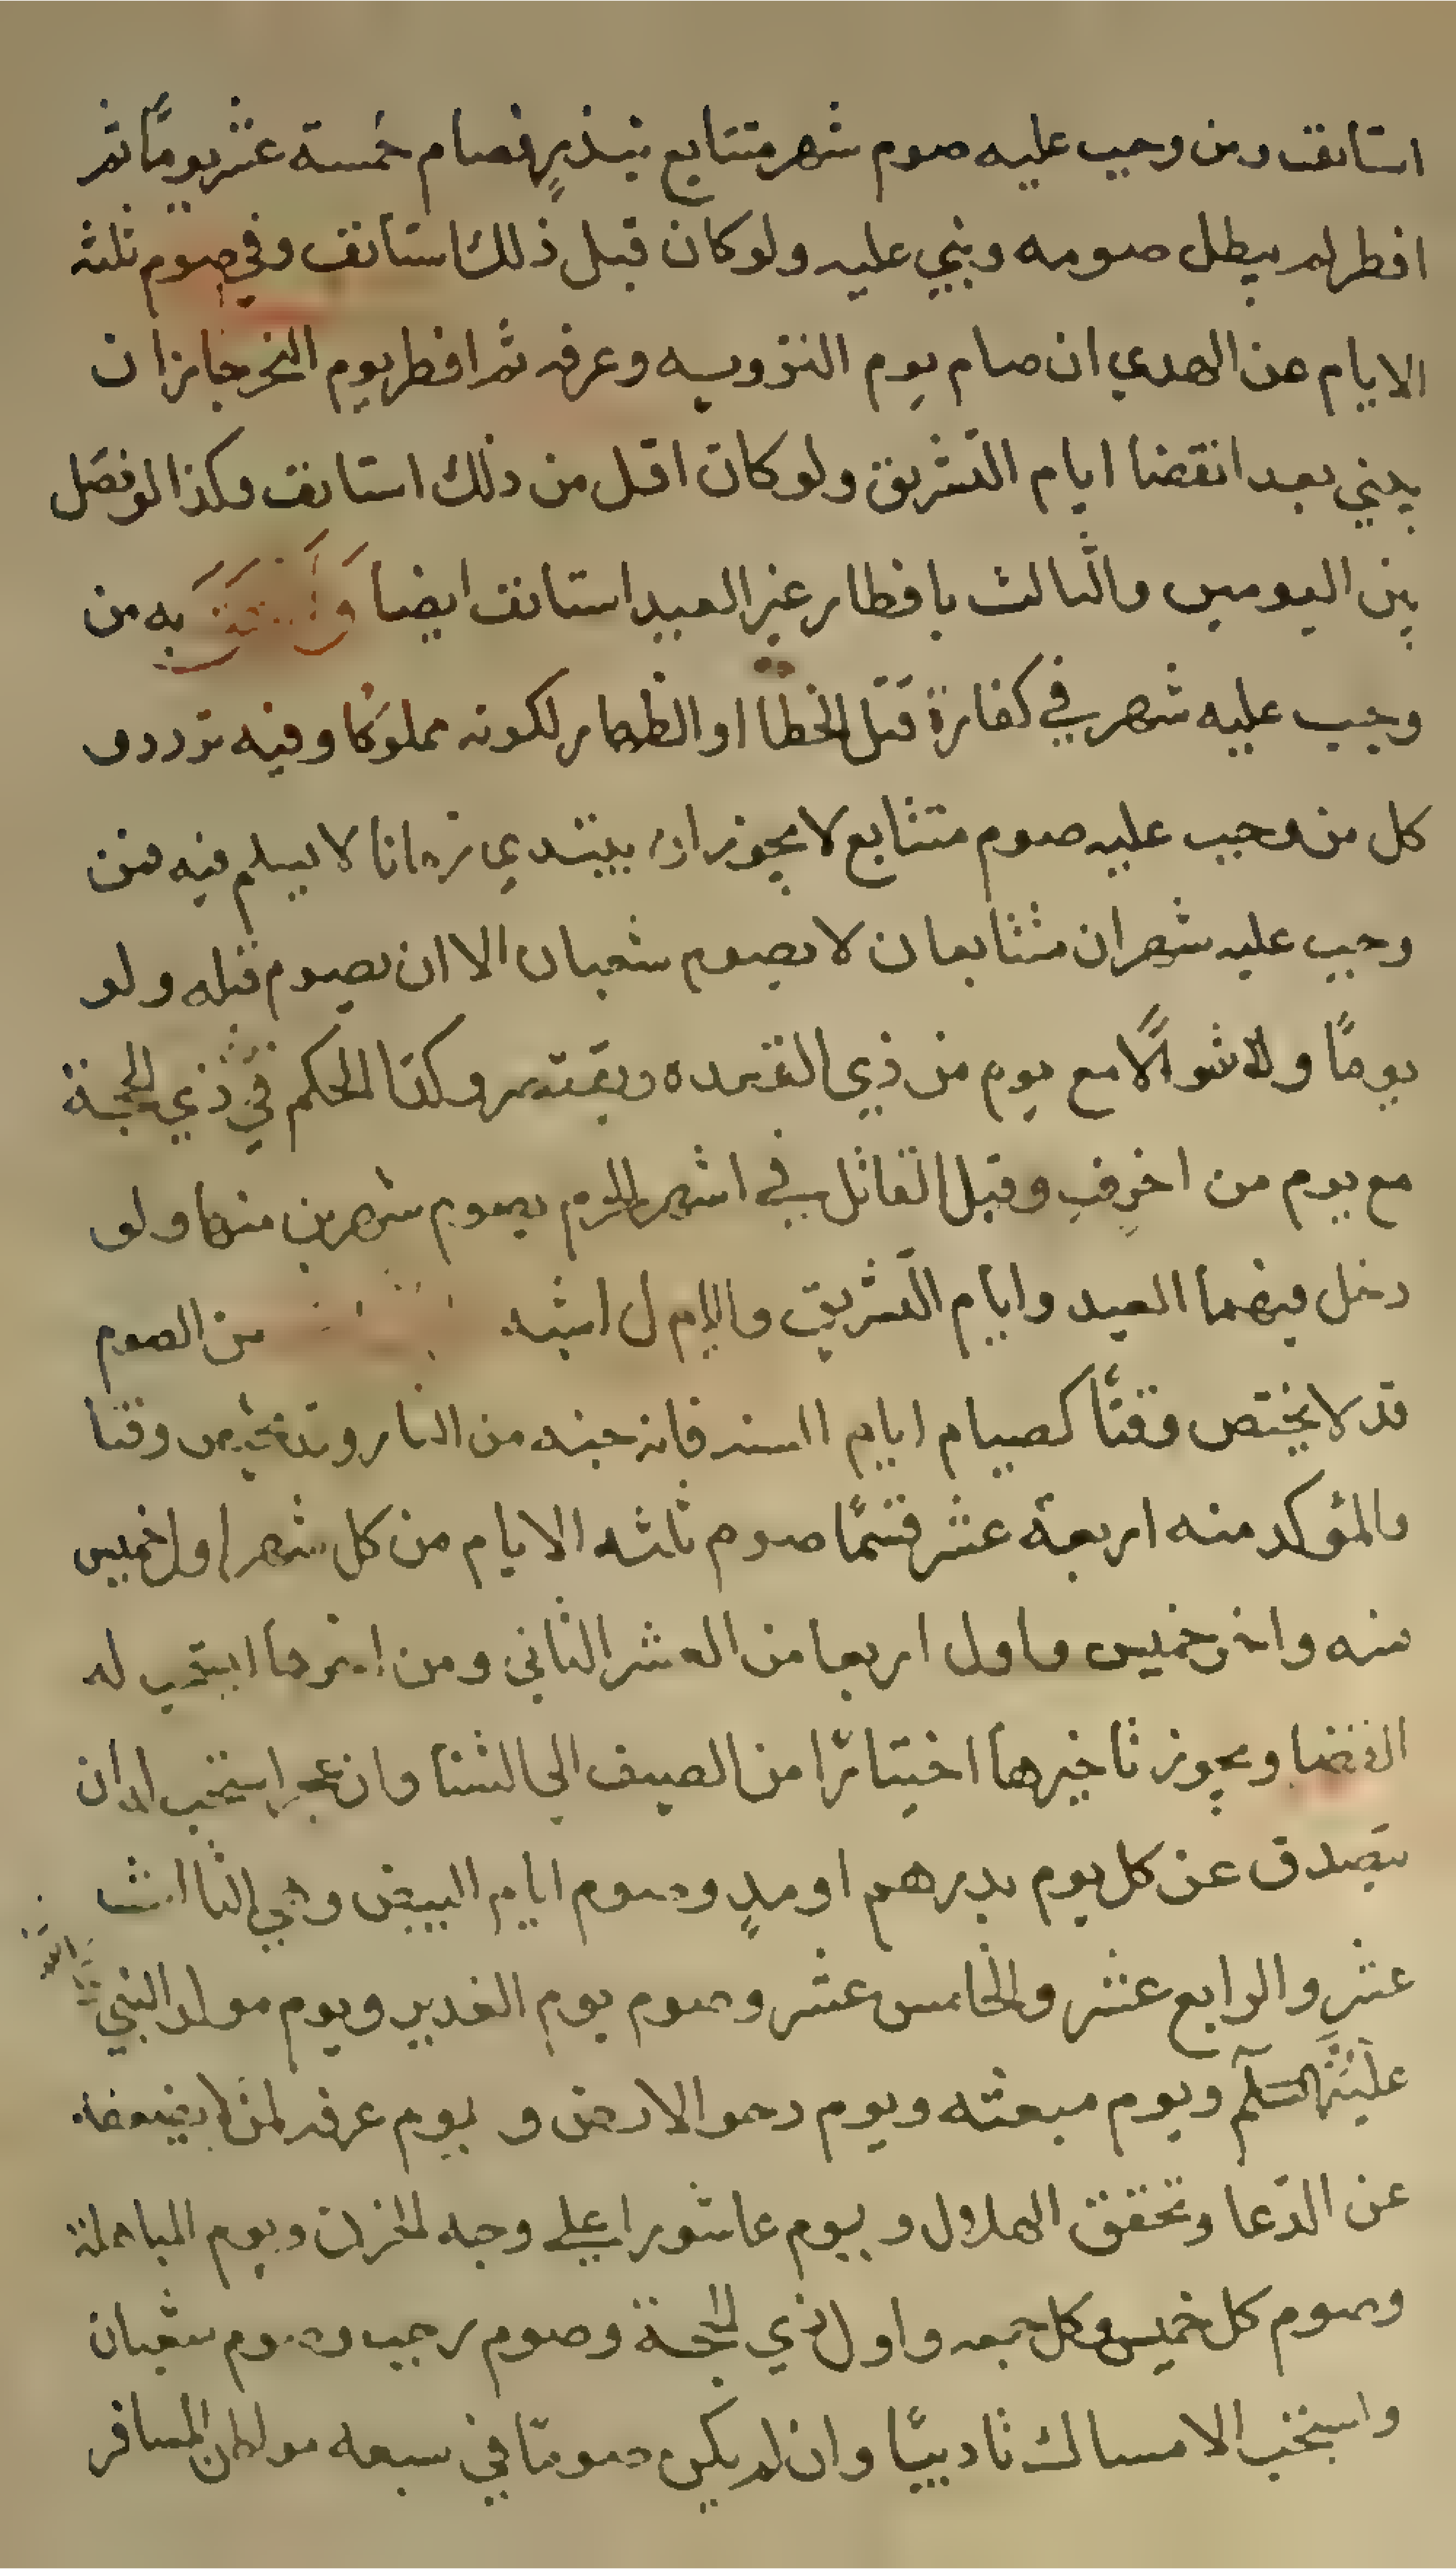 استانف ومن وجب عليه صوم شهر متتابع بنذرٍ فصام خمسة عشر يومًا ثم
افطر لم يبطل صومه وبني عليه ولو كان قبل ذلك استانف وفي صوم ثلثه
الايام عن الهدي ان صام يوم الترويه وعرفه ثم افطر يوم النحر جاز ان
يبني بعد انقضا ايام التشريق ولو كان اقل من ذلك استانف وكذا لو فصل
بين اليومين والثالث بافطار غير العيد استانف ايضا به من
وجب عليه شهر في كفارة قتل الخطا او الظهار لكونه مملوكا وفيه تردد و
كل من وجب عليه صوم متتابع لا يجوز ان يبتدي زمانا لا يسلم فيه فمن
وجب عليه شهران متتابعان لا يصوم شعبان الا ان يصوم قبله ولو
يومًا ولا شوالًا مع يوم من ذي القعده ويقتصر وكذا الحكم في ذي الحجة
مع يوم من اخر وقيل القاتل في اشهر الحرم يصوم شهرين منها ولو
دخل فيهما العيد وايام التشريق والاول اشبه من الصوم
قد لا يختص وقتًا كصيام ايام السنه فانه جنه من النار وقد يختص وقتا
والمؤكد منه اربعة عشر قسمًا صوم ثلثه الايام من كل شهر اول خميس
منه واخر خميس واول اربعا من العشر الثاني ومن اخرها استحب له
القضا ويجوز تاخيرها اختيارًا من الصيف الي الشتا وان عجز استحب له ان
يتصدق عن كل يوم بدرهم او مدٍ وصوم ايام البيض وهي الثالث
عشر والرابع عشر والخامس عشر وصوم يوم الغدير ويوم مولد النبي
عليه السلم ويوم مبعثه ويوم دحو الارض و يوم عرفه لمن لا يضعفه
عن الدّعا وتحقق الهلال و يوم عاشورا علي وجه الحزن ويوم المباهلة
وصوم كل خميس وكل جمعه واول ذي الحجة وصوم رجب وصوم شعبان
واستحب الامساك تاديبًا وان لم يكن صومًا في سبعه مواطن المسافر